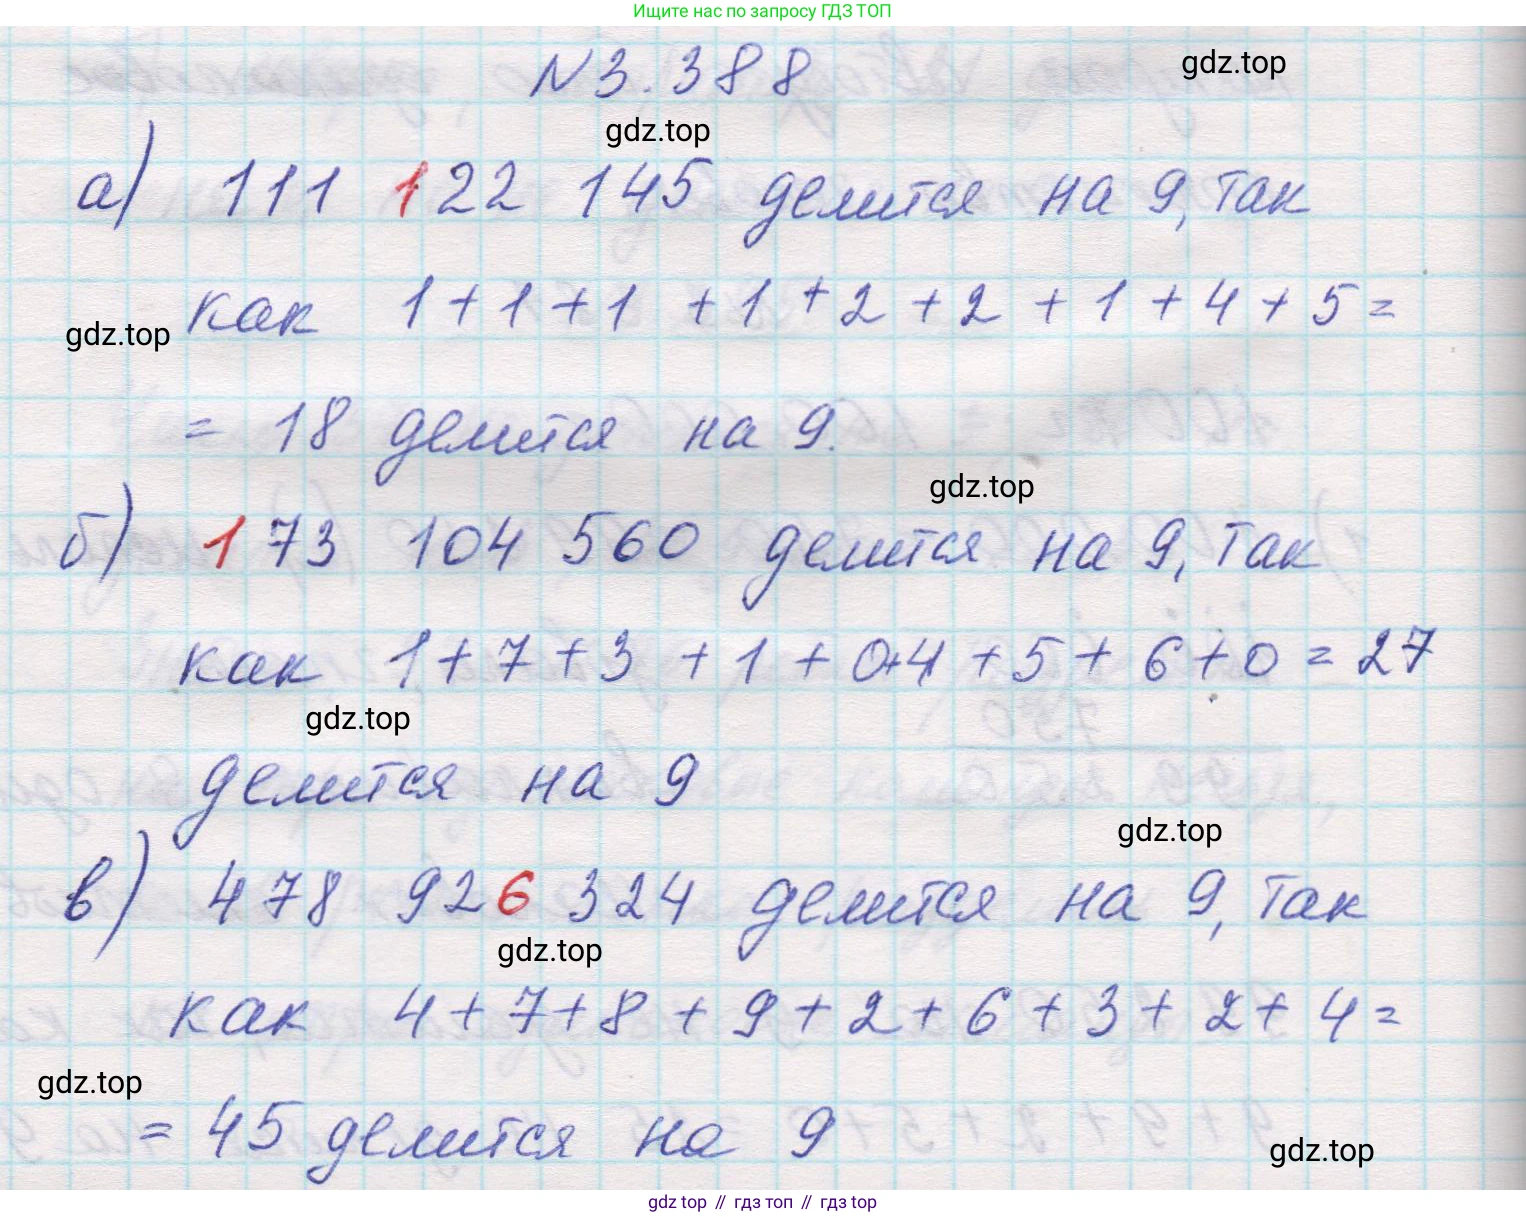 Ищите нас по запросу ГДЗ ТОП
N 3.388
gdz.top
gdz.top
а) 111 122 145 делится на 9, так
как 1+1+1 +1+2+2+1+4+5=
gdz.top
= 18 делится на 9.
gdz.top
б) 173 104 560 делится на 9, так
как 1+7+3+1+0+4+5+6+0=27
gdz.top
делится на 9
gdz.top
в) 478 926 324 делится на 9, так
gdz.top
как 4+7+8+9+2+6+3+2+4=
gdz.top
= 45 делится на 9
gdz.top
gdz top // гдз топ // гдз top